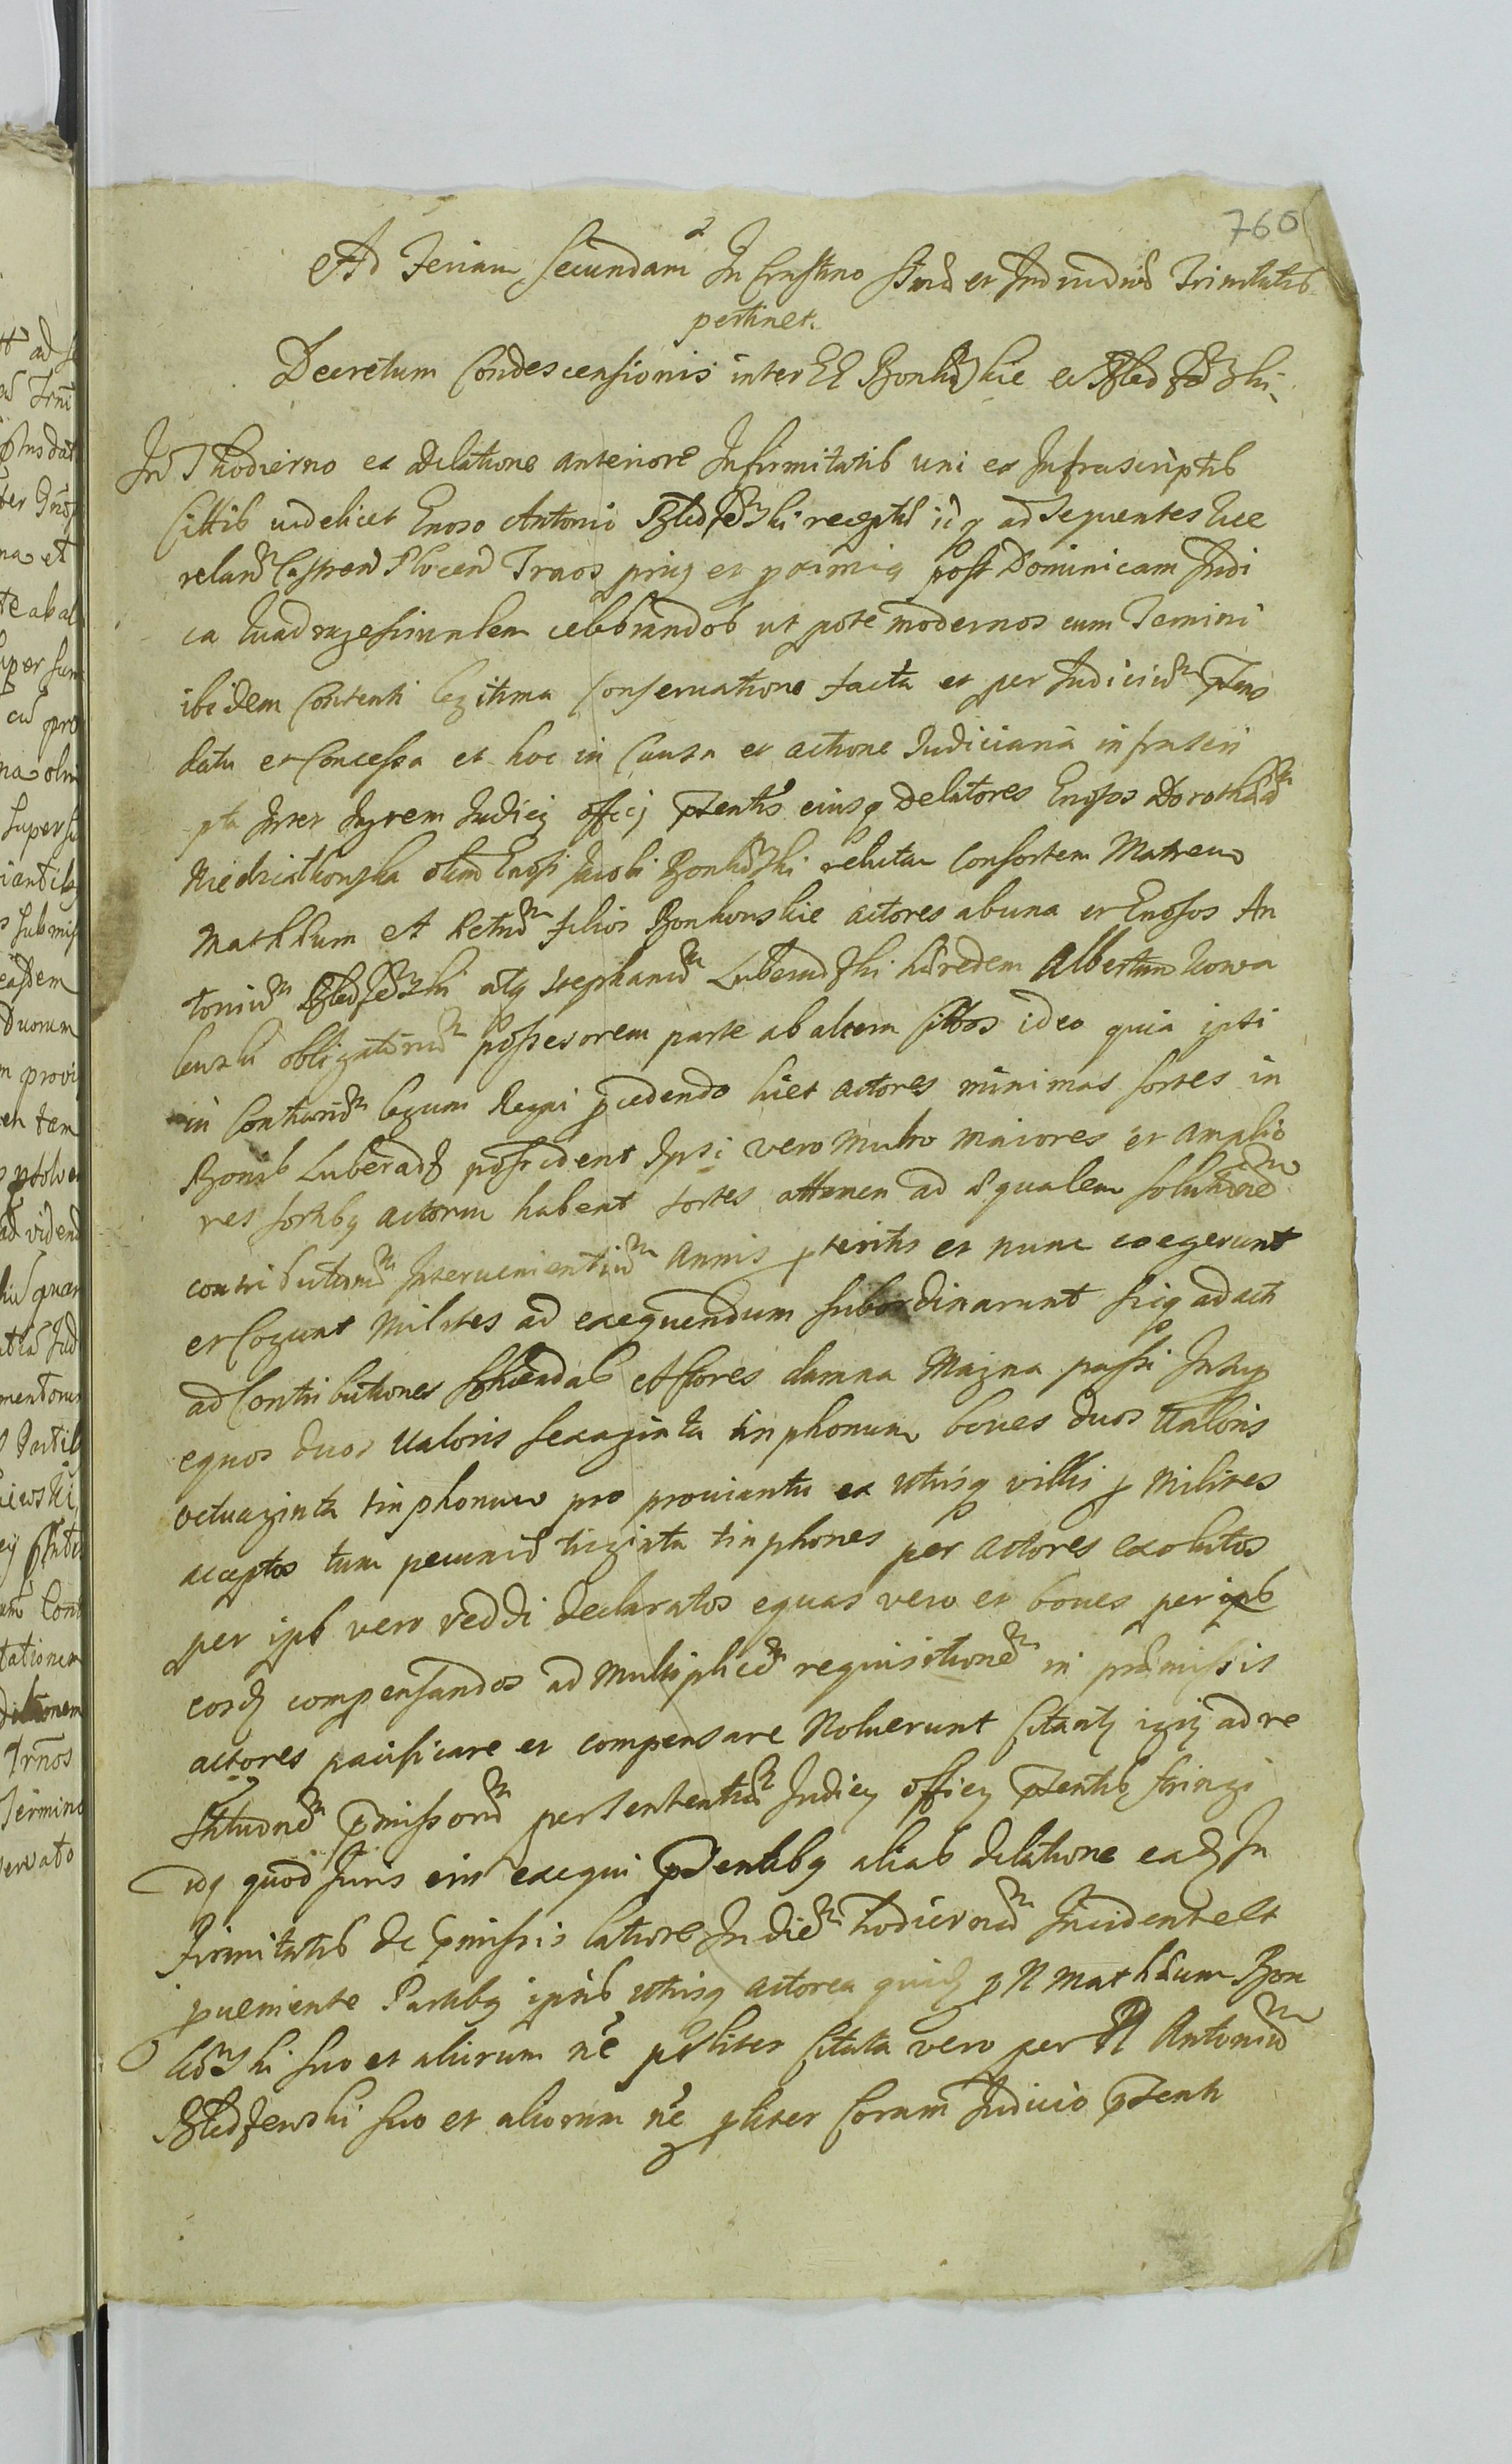 760
Ad Feriam Secundam In Crastino Stmæ et Individuæ Trinitatis
pertinet.
Decretum Condescensionis inter GG Bonkowskie et Szledzewski
In T hodierno ex dilatione anteriore Infirmitatis uni ex Infrascriptis
Cittis videlicet Gnoso Antonio Szledzewski recepta idq ad sequentes que
relarum Castren Plocen Trnos prius et proxime post Dominicam Iudi
ca Quadragesimalem celebrandos ut pote modernos cum Termini
ibidem Contenti legitima Conservatione facta et per Iudicium Ptens
data et Concessa et hoc in Causa et actione Iudiciaria infrascri
pta Inter Instigrem Iudicy officy Ptentis eiusq Delatores Gnosos Dorotheam
Niedzialkowska olim Gnosi Jacobi Bonkowski relictam Consortem Matrem
Mathæum et Petrum filios Bonkowskie actores ab una et Gnosos An
tonium Szledzewski atq Stephanum Luberadzki hæredem Albertum Kowa
lewski obligatorium possesorem parte ab altera Cittos ideo quia ipsi
in Contrarium legum Regni procedendo licet actores minimas sortes in
Bonis Luberadz possident Ipsi vero Multo maiores et amplio
res sortibq actorum habent sortes attamen ad æqualem solutionem
contributionum Intervenientium Annis pteritis et nunc coegerunt
et Cogunt Milites ad exequendum subordinarunt sicq adacti
ad Contributiones solvendas Actores damna Magna passi Insup
equos duos valoris sexaginta tinphonum boves duos valoris
octuaginta tinphonum pro proviantu ex utrisq villis p Milites
acceptos tum pecuniæ triginta tinphones per actores exolutos
per ipsos vero reddi declaratos equas vero et boves per ipsos
eosq compensandos ad Multiplicem requisitionem in præmissis
actores pacificare et compensare Noluerunt Citanty igiq ad re
stitutionem Pmissorum per sententiam Iudicy officy Ptentis stringi
idq quod Iuris erit exequi Ptentibq alias dilatione eadq In
firmitatis de Pmissis latiore In diem hodiernum Incidente et
pveniente Partibq ipsis utrisq actorea quidq p N Mathæum Bon
kowski suo et aliorum nē psliter Citata vero per N Antonium
Szledzewski suo et aliorum nē psliter Coram Iudicio Ptenti